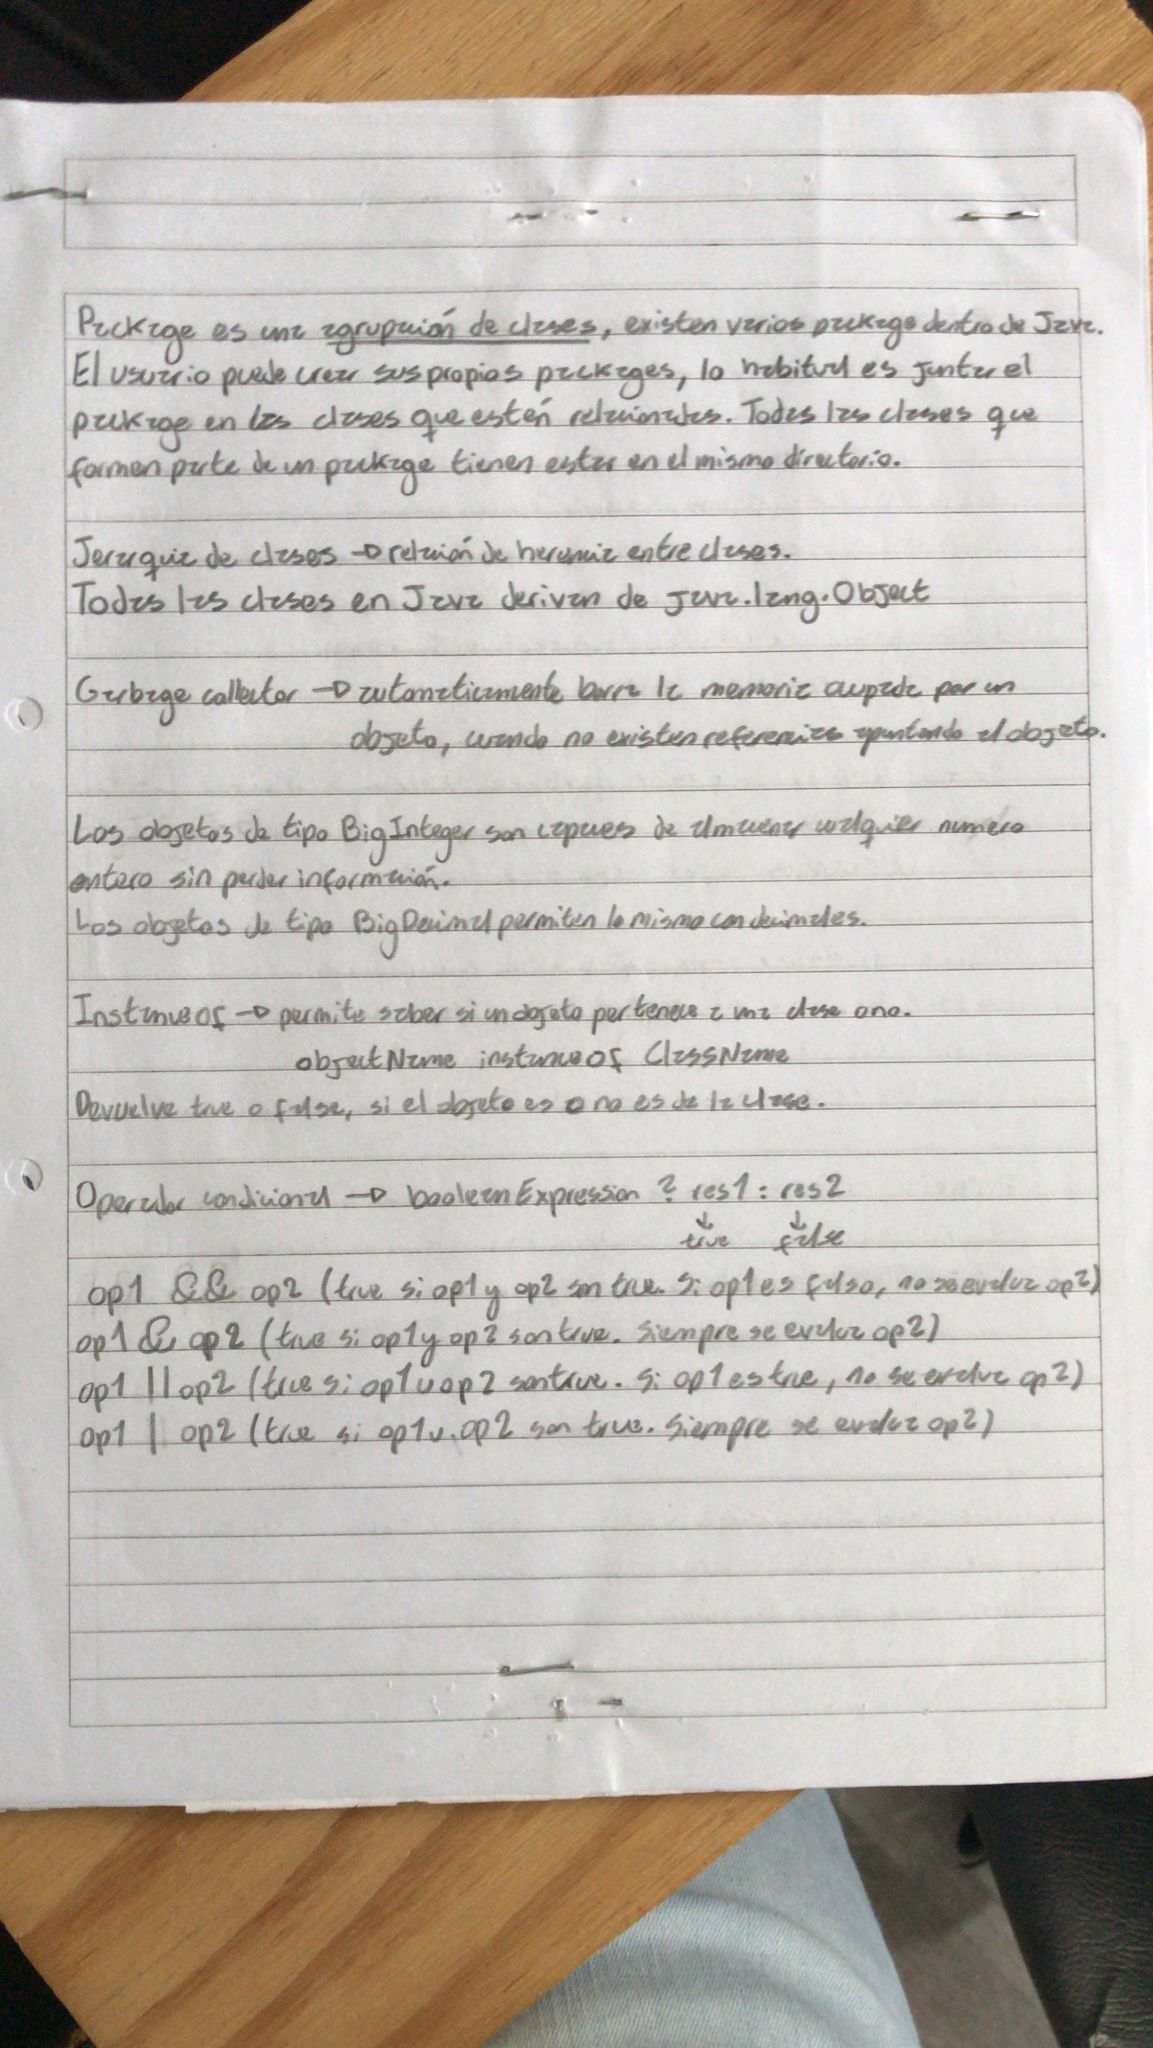 Package es una agrupación de clases, existen varios package dentro de Java.
El usuario puede crear sus propios packages, lo habitual es juntar el
package en las clases que estén relacionadas. Todas las clases que
formen parte de un package tienen estar en el mismo directorio.
Jerarquia de clases → relación de herencia entre clases.
Todas las clases en Java derivan de java.lang.Object
Garbage collector → automaticamente borra la memoria ocupada por un
objeto, cuando no existen referencias apuntando al objeto.
Los objetos de tipo BigInteger son capaces de almacenar cualquier numero
entero sin perder información.
Los objetos de tipo BigDecimal permiten lo mismo con decimales.
Instanceof → permite saber si un objeto pertenece a una clase o no.
objectName instanceof ClassName
Devuelve true o false, si el objeto es o no es de la clase.
Operador condicional → booleanExpression ? res1 : res2
↓ ↓
true false
op1 && op2 (true si op1 y op2 son true. Si op1 es falso, no se evalua op2)
op1 & op2 (true si op1 y op2 son true. Siempre se evalua op2)
op1 || op2 (true si op1 u op2 son true. Si op1 es true, no se evalua op2)
op1 | op2 (true si op1 u op2 son true. Siempre se evalua op2)